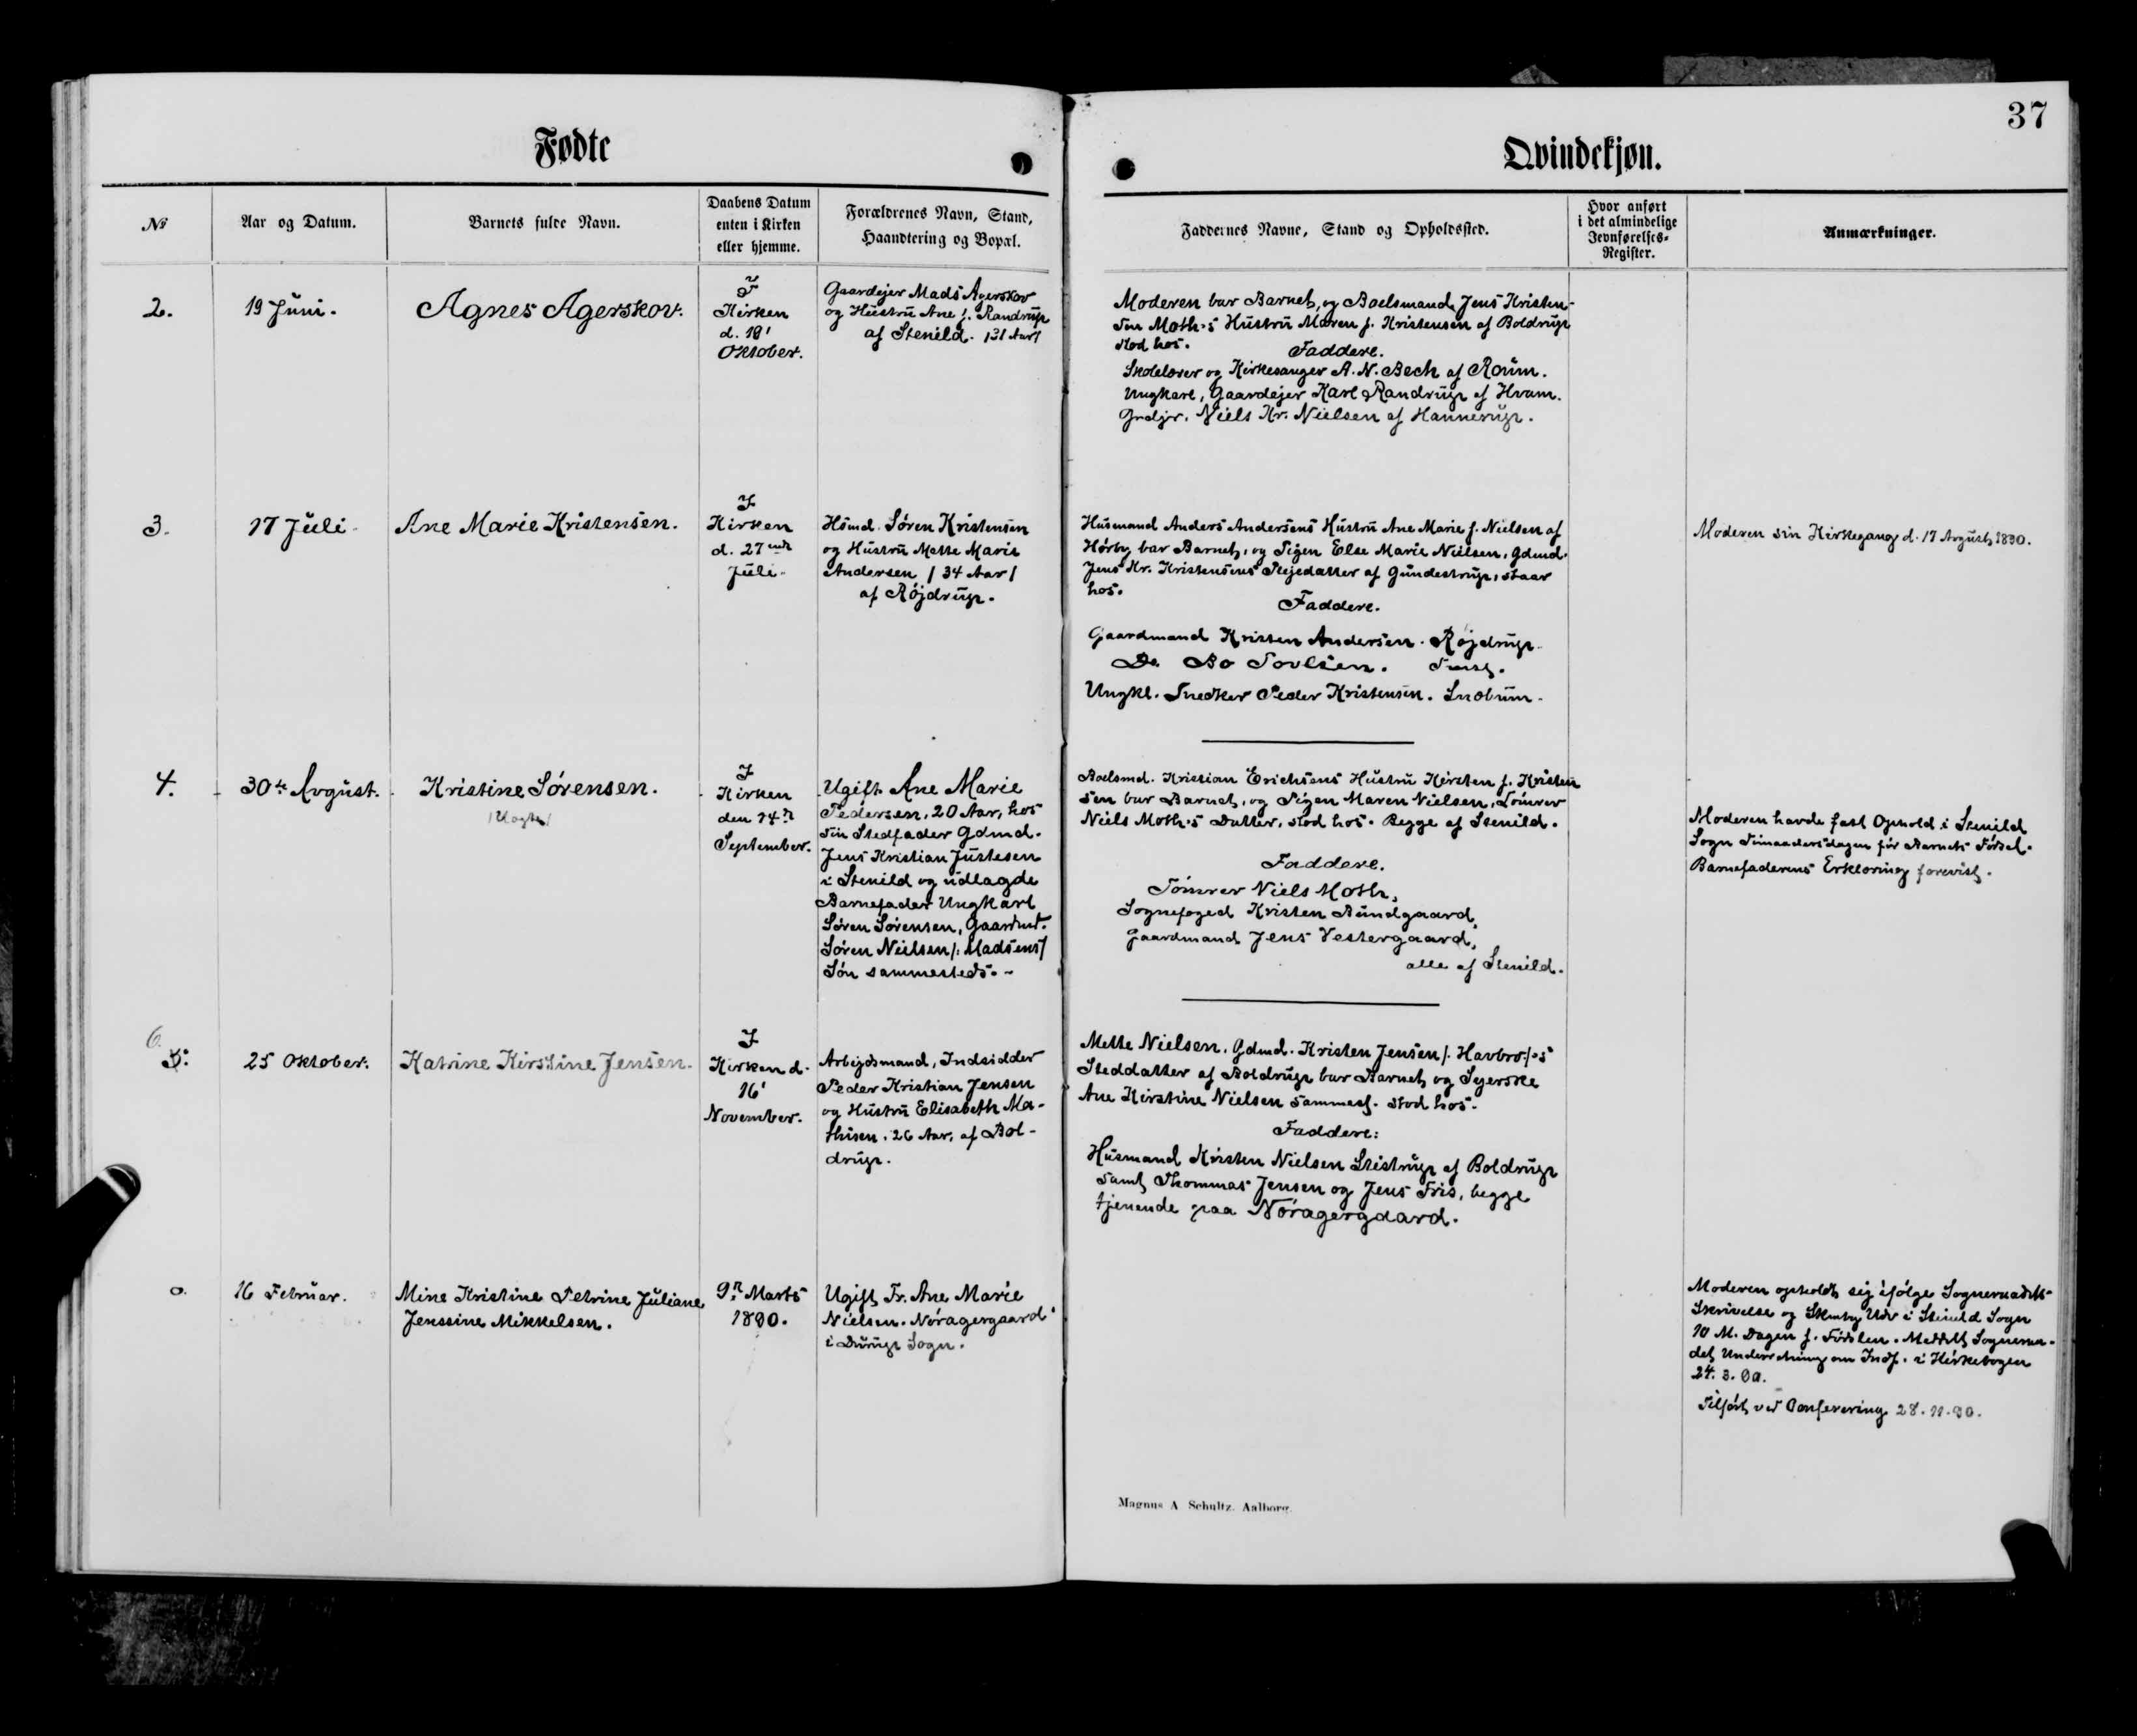 37
Fødte
Qvindekjøn.
No
Aar og Datum.
Barnets fulde Navn.
Daabens Datum
enten i Kirken
eller hjemme.
Forældrenes Navn, Stand,
Haandtering og Bopæl.
Faddernes Navne, Stand og Opholdssted.
Hvor anført
i det almindelige
Jevnførelses-
Register.
Anmærkninger.
2.
19 Juni.
Agnes Agerskov.
I
Kirken
d. 19'
Oktober.
Gaardejer Mads Agerskov
og Hustru Ane f. Randrup
af Stenild. /31 Aar/
Moderen bar Barnet, og Boelsmand Jens Kristen-
sen Moth's Hustru Maren f. Kristensen af Boldrup
stod hos.
Faddere.
Skolelærer og Kirkesanger A. N. Bech af Roum.
Ungkarl, Gaardejer Karl Randrup af Hvam.
Grdjr. Niels Kr. Nielsen af Hannerup.
3.
17 Juli
Ane Marie Kristensen.
I
Kirken
d. 27
Juli.
Hsmd. Søren Kristensen
og Hustru Mette Marie
Andersen / 34 Aar /
af Røjdrup.
Husmand Anders Andersens Hustru Ane Marie f. Nielsen af
Hørby bar Barnet, og Pigen Else Marie Nielsen, Gdmd.
Jens Kr. Kristensens Plejedatter af Gundestrup, staar
hos.
Faddere.
Gaardmand Kristen Andersen. Røjdrup.
Do. Bo Povlsen.
Ungkl. Snedker Peder Kristensen. Snobum.
Moderen sin Kirkegang d. 17 Avgust 1890.
4.
30te Avgust.
Kristine Sørensen.
/Uægte/
I
Kirken
den 14de
September.
Ugift Ane Marie
Pedersen, 20 Aar, hos
sin Stedfader Gdmd.
Jens Kristian Justesen
i Stenild og udlagde
Barnefader Ungkarl
Søren Sørensen, Gaardmd.
Søren Nielsen /: Madsens/
Søn sammesteds. -
Boelsmd. Kristian Erichsens Hustru Kirsten f. Kristen
sen bar Barnet, og Pigen Maren Nielsen, Tømrer
Niels Moth's Datter, stod hos. Begge af Stenild.
Faddere.
Tømrer Niels Moth,
Sognefoged Kristen Bundgaard,
Gaardmand Jens Vestergaard,
alle af Stenild.
Moderen havde fast Ophold i Stenild
Sogn Timaanersdagen før Barnets Fødsel.
Barnefaderens Erklæring forevist.
6.
5.
25 Oktober.
Katrine Kirstine Jensen.
I
Kirken d.
16'
November.
Arbejdsmand, Indsidder
Peder Kristian Jensen
og Hustru Elisabeth Ma-
thisen. 26 Aar, af Bol-
drup.
Mette Nielsen, Gdmd. Kristen Jensen /: Havbro :/'s
Steddatter af Boldrup bar Barnet og Syerske
Ane Kirstine Nielsen sammest. stod hos.
Faddere:
Husmand Kristen Nielsen Stistrup af Boldrup
samt Thommas Jensen og Jens Friis, begge
tjenende paa Nøragergaard.
o.
16 Februar.
Mine Kristine Petrine Juliane
Jenssine Mikkelsen.
9n Marts
1890.
Ugift Fr. Ane Marie
Nielsen. Nøragergaard
i Durup Sogn.
Moderen opholdt sig ifølge Sogneraadets
Skrivelse og i Stenild Sogn
10 M. Dagen f. Fødslen. Meddelt Sognera-
det Underretning om Indf. i Kirkebogen
24. 3. 90.
Tilført ved Conferering 28. 11. 90.
Magnus A Schultz. Aalborg.